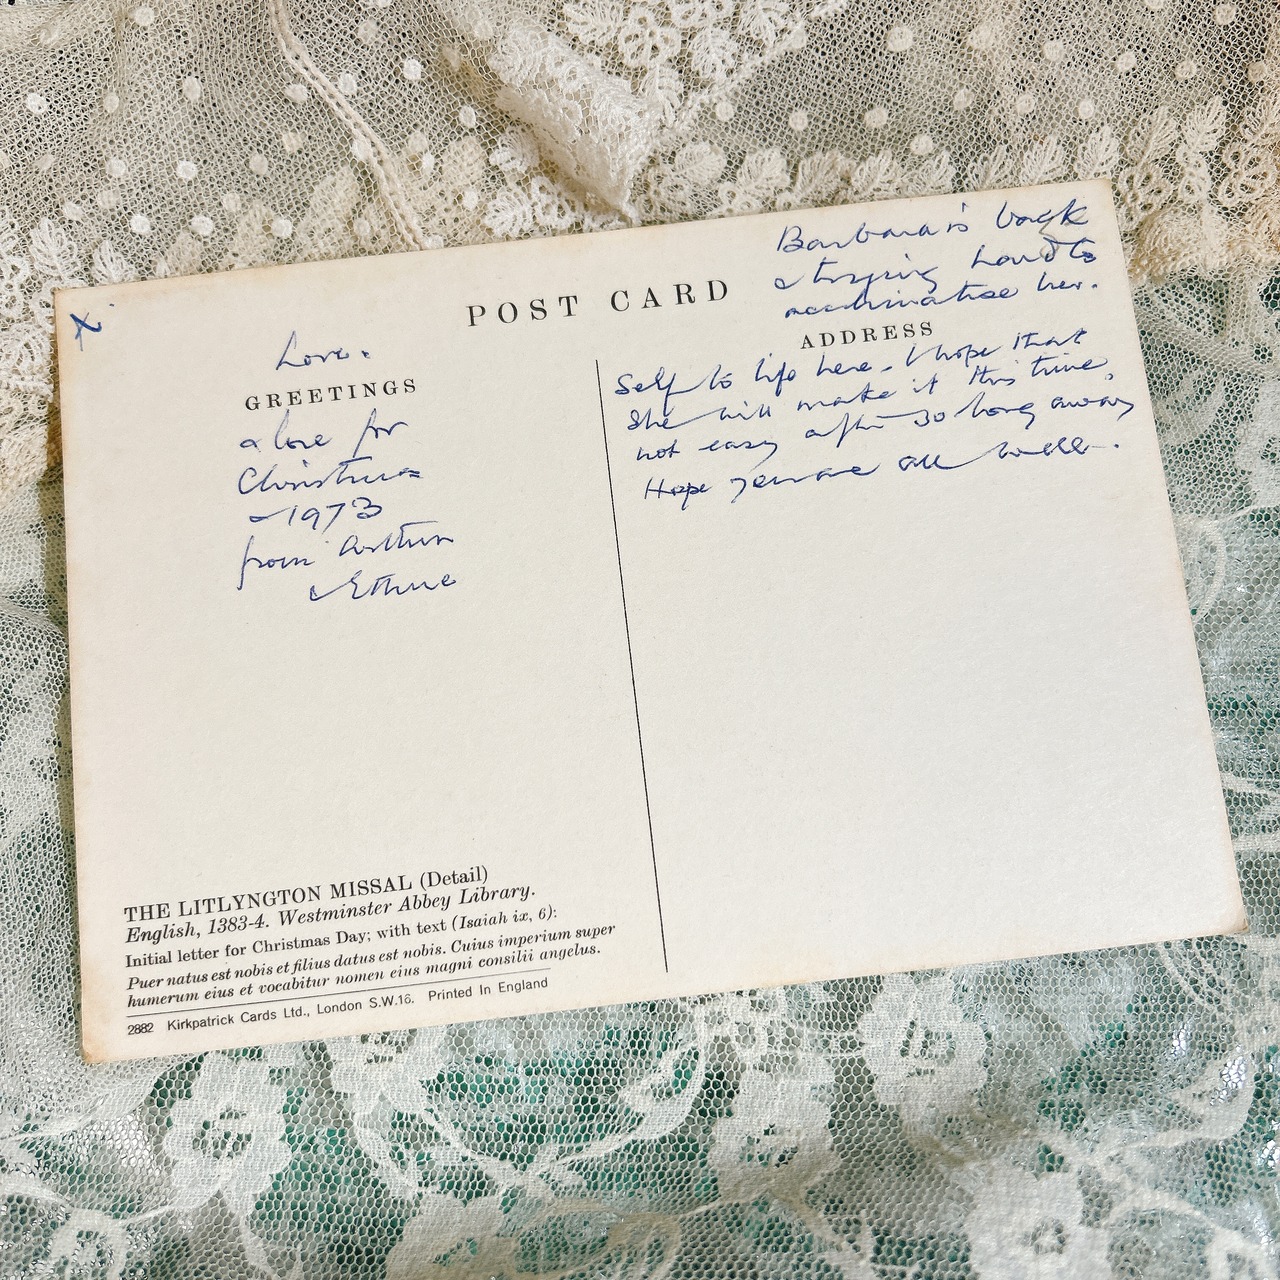 POST CARD
Love.
GREETINGS
& love for
Christmas
& 1973
from Arthur
& Ethne
Barbara is back
& trying hard to
acclimatise her.
ADDRESS
Self to life here. I hope that
She will make it this time,
not easy after so long away
Hope you are all well.
THE LITLYNGTON MISSAL (Detail)
English, 1383-4. Westminster Abbey Library.
Initial letter for Christmas Day; with text (Isaiah ix, 6):
Puer natus est nobis et filius datus est nobis. Cuius imperium super
humerum eius et vocabitur nomen eius magni consilii angelus.
2882 Kirkpatrick Cards Ltd., London S.W.16. Printed In England